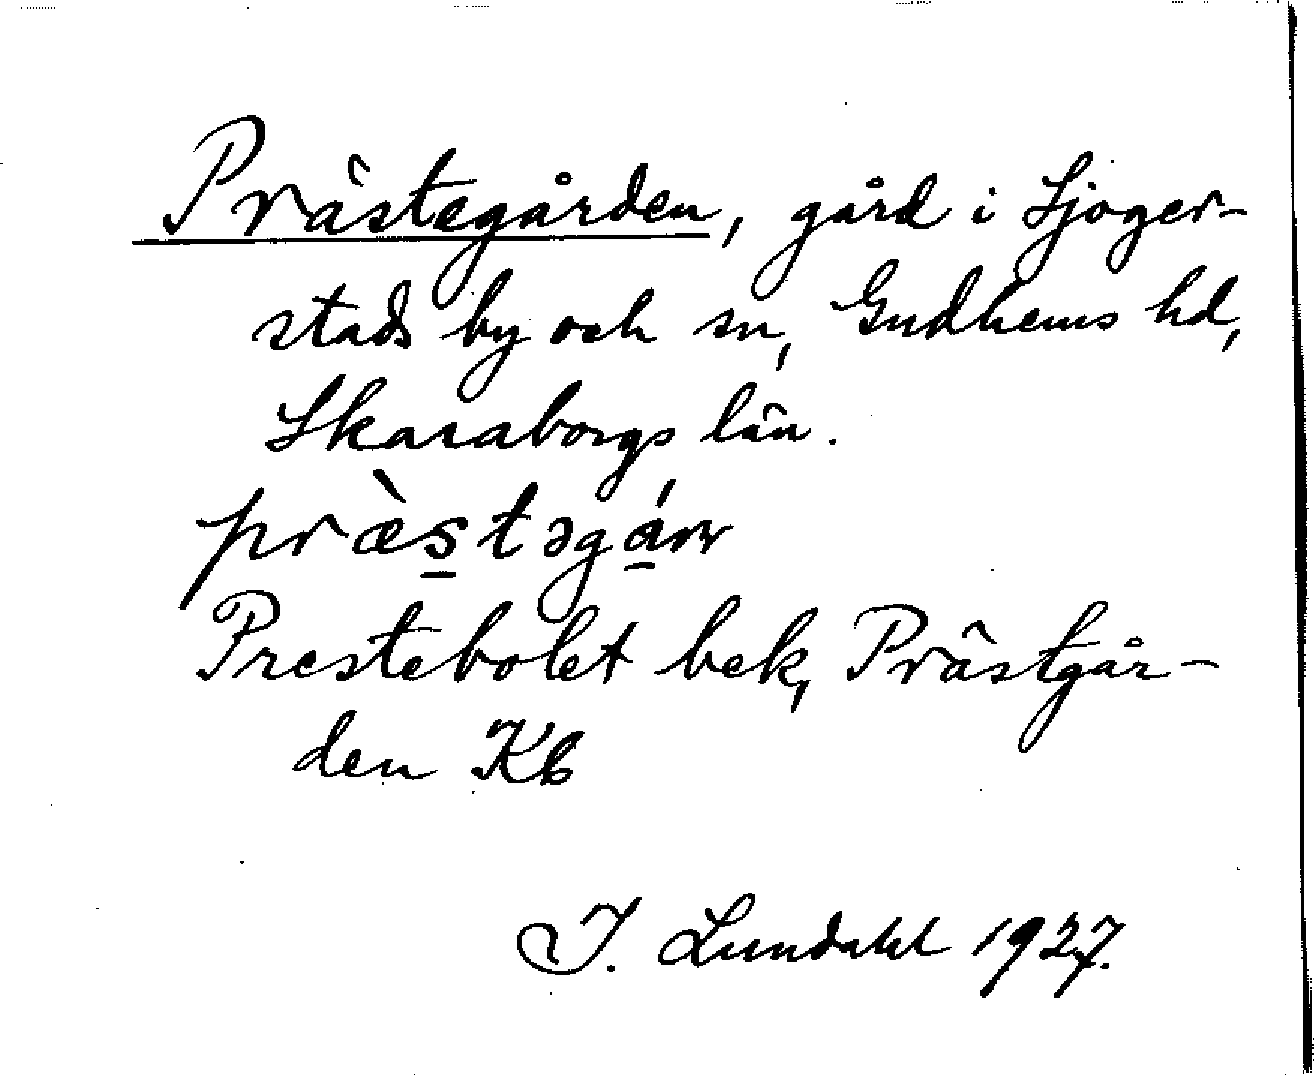 Prästegården, gård i Sjoger-
stads by och sn, Gudhems hd,
Skaraborgs län.
præ̀s̲təgá̲rn
Prestebolet bek, Prästgår-
den Kb
I. Lundahl 1927.